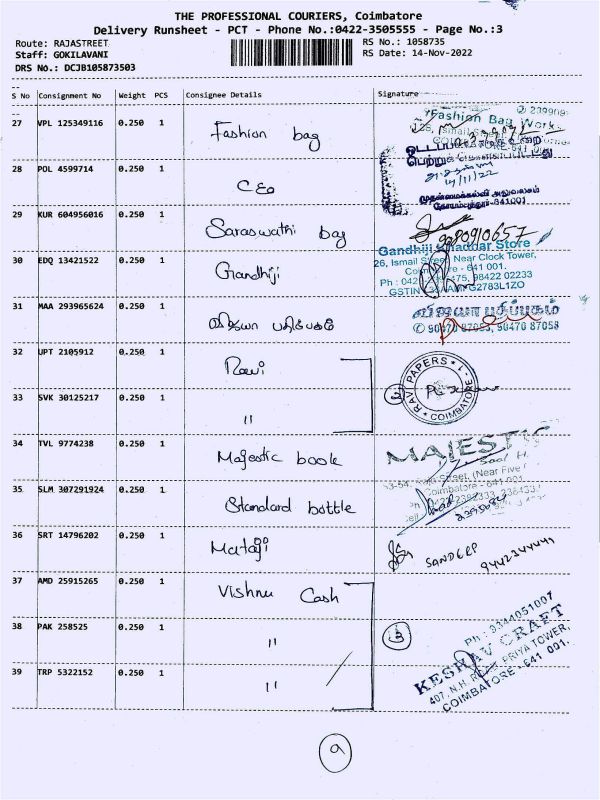 THE PROFESSIONAL COURIERS, Coimbatore
Delivery Runsheet - PCT - Phone No.:0422-3505555 - Page No.:3
Route: RAJASTREET
Staff: GOKILAVANI
DRS No.: DCJB105873503
RS No.: 1058735
RS Date: 14-Nov-2022
S No Consignment No Weight PCS Consignee Details Signature
27 VPL 125349116 0.250 1 Fashion bag
Fashion Bag Works
28 POL 4599714 0.250 1 CEO
முதன்மைக்கல்வி அலுவலகம்
கோயம்புத்தூர்-641001
29 KUR 604956016 0.250 1 Saraswathi bag
9080910657
30 EDQ 13421522 0.250 1 Gandhiji
Gandhiji Khaddar Store
26, Ismail Street, Near Clock Tower,
Coimbatore - 641 001.
98422 02233
31 MAA 293965624 0.250 1 விஜயா பதிப்பகம்
விஜயா பதிப்பகம்
90470 87053, 90470 87058
32 UPT 2105912 0.250 1 Ravi
33 SVK 30125217 0.250 1 "
2
RAVI PAPERS * COIMBATORE - 1 *
34 TVL 9774238 0.250 1 Majestic book
MAJESTIC
Street, (Near Five
Coimbatore - 641 001
35 SLM 307291924 0.250 1 Standard bottle
36 SRT 14796202 0.250 1 Mataji
SANDEEP
9442344449
37 AMD 25915265 0.250 1 Vishnu Cash
38 PAK 258525 0.250 1 "
3
39 TRP 5322152 0.250 1 "
Ph : 9344051007
KESHAV CRAFT
407, N.H. ROAD, PRIYA TOWER,
COIMBATORE - 641 001.
9